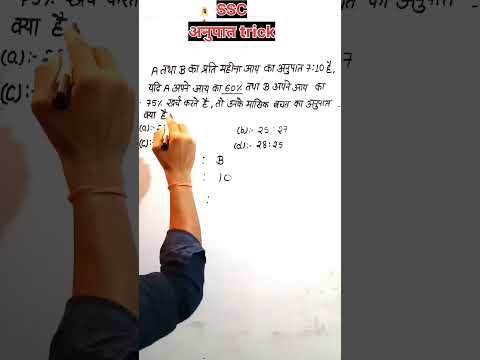 SSC
अनुपात trick
A तथा B का प्रति महीना आय का अनुपात 7:10 है,
यदि A अपने आय का 60% तथा B अपने आय का
75% खर्च करते है, तो उनके मासिक बचत का अनुपात
क्या है
(a):-
(b):- 25:27
(c):-
(d):- 28:25
: B
: 10
: